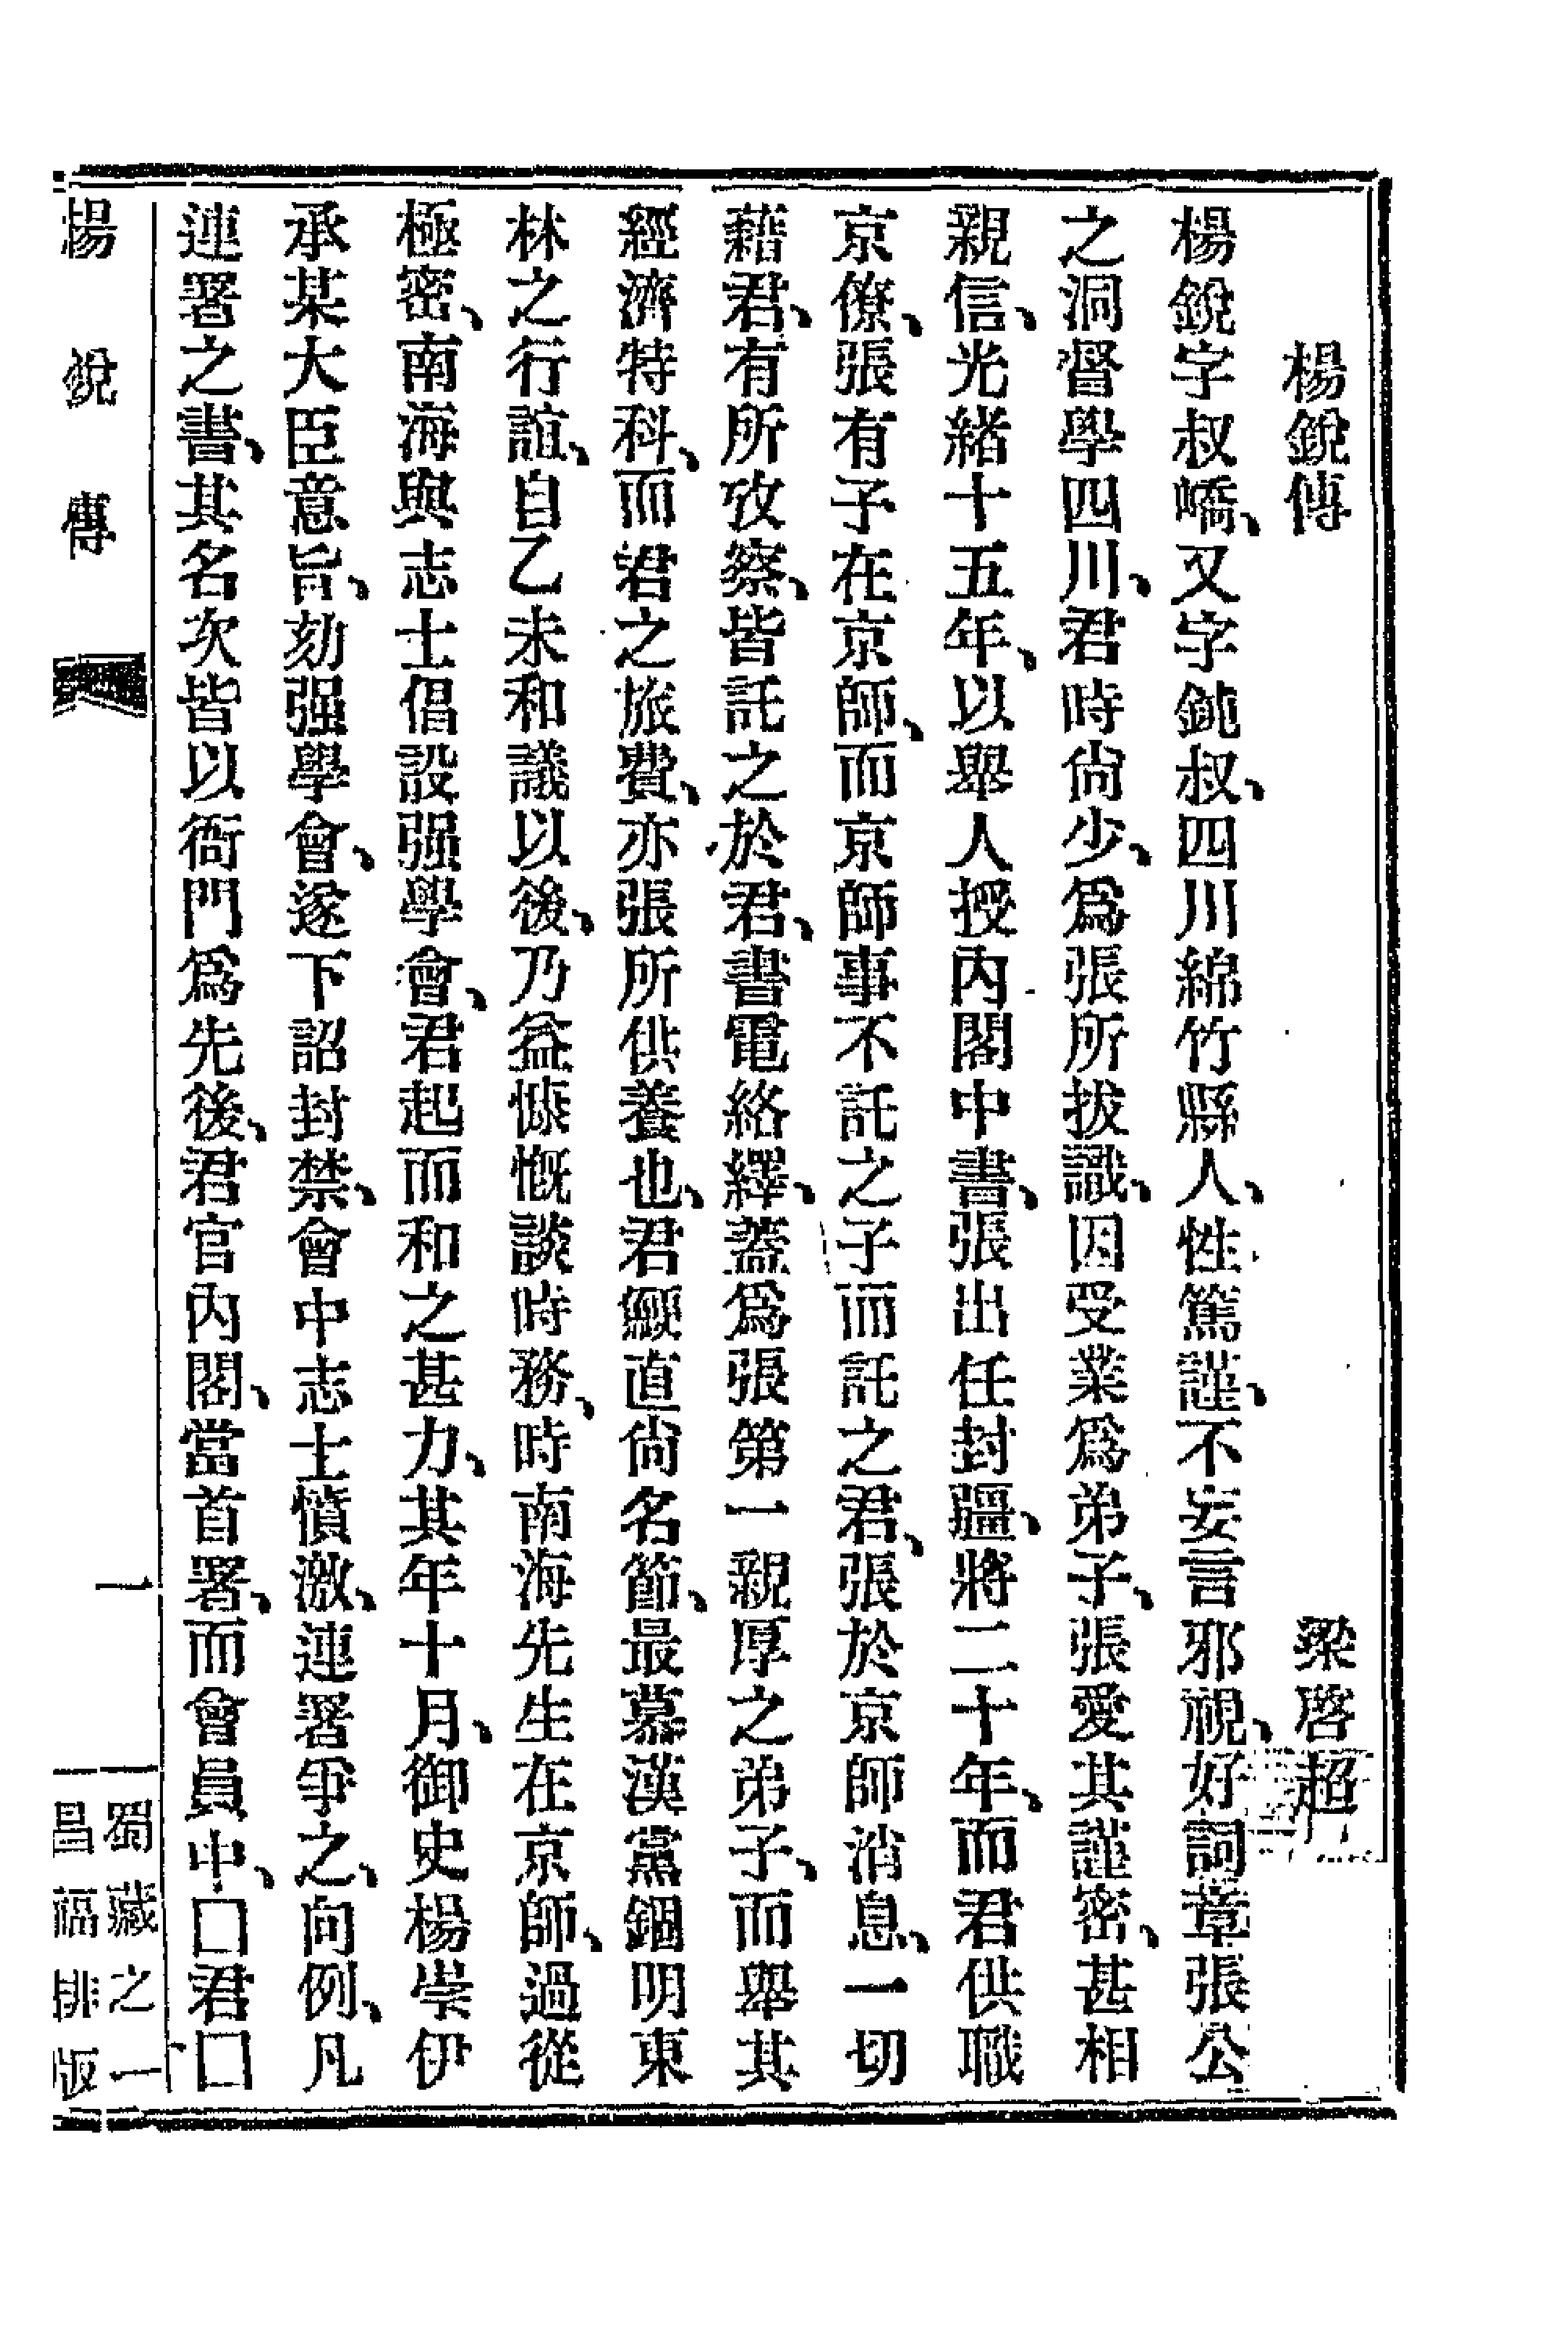 楊銳傳　梁啓超
楊銳字叔嶠、又字鈍叔、四川綿竹縣人、性篤謹、不妄言邪視、好詞章張公
之洞督學四川、君時尙少、爲張所拔識、因受業爲弟子、張愛其謹密、甚相
親信、光緒十五年、以舉人授內閣中書、張出任封疆、將二十年、而君供職
京僚、張有子在京師、而京師事不託之子而託之君、張於京師消息、一切
藉君、有所攷察、皆託之於君、書電絡繹、蓋爲張第一親厚之弟子、而舉其
經濟特科、而君之旅費、亦張所供養也、君鯁直尙名節、最慕漢黨錮明東
林之行誼、自乙未和議以後、乃益慷慨談時務、時南海先生在京師、過從
極密、南海與志士倡設强學會、君起而和之甚力、其年十月、御史楊崇伊
承某大臣意旨、劾强學會、遂下詔封禁、會中志士憤激、連署爭之、向例、凡
連署之書、其名次皆以衙門爲先後、君官內閣、當首署、而會員中、囗君囗
楊銳傳　一
蜀藏之一
昌福排版